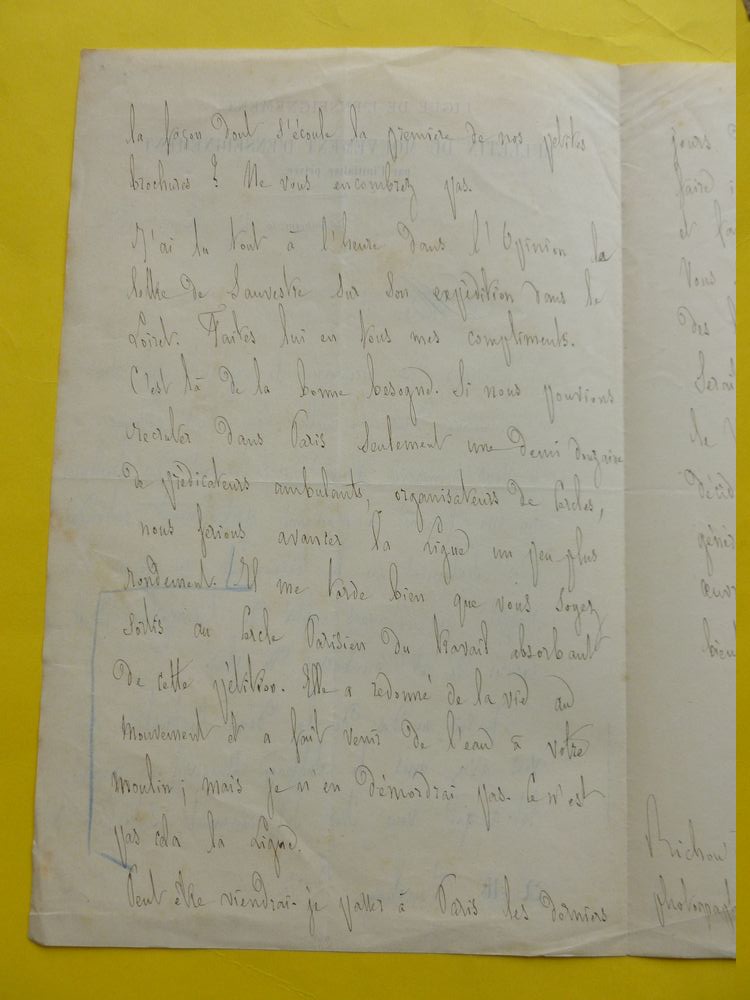 la façon dont s'écoule la première de nos petites
brochures ? Ne vous encombrez pas.
J'ai lu tout à l'heure dans l'Opinion la
lettre de Sauvestre sur son expédition dans le
Loiret. Faites lui en tous mes compliments.
C'est là de la bonne besogne. Si nous pouvions
recruter dans Paris seulement une demi douzaine
de prédicateurs ambulants, organisateurs de Cercles,
nous ferions avancer la Ligue un peu plus
rondement. Il me tarde bien que vous soyez
sortis au Cercle Parisien du travail absorbant
de cette pétition. Elle a redonné de la vie au
mouvement et a fait venir de l'eau à votre
moulin ; mais je n'en démordrai pas. Ce n'est
pas cela la Ligue.
Peut être viendrai-je passer à Paris les derniers
jours
faire
et
Vous
des
Serai
le
décid
génér
œuvr
bien
Richou
photograph